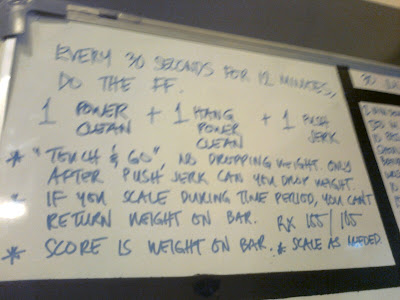 EVERY 30 SECONDS FOR 12 MINUTES,
DO THE FF.
1 POWER CLEAN + 1 HANG POWER CLEAN + 1 PUSH JERK
* "TOUCH & GO", NO DROPPING WEIGHT. ONLY
AFTER PUSH JERK CAN YOU DROP WEIGHT.
* IF YOU SCALE DURING TIME PERIOD, YOU CAN'T
RETURN WEIGHT ON BAR. RX 155/105
* SCORE IS WEIGHT ON BAR. * SCALE AS NEEDED.
30